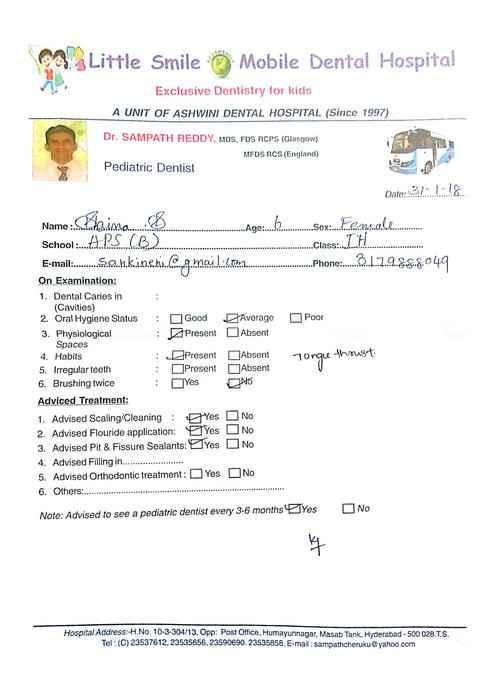 Little Smile Mobile Dental Hospital
Exclusive Dentistry for kids
A UNIT OF ASHWINI DENTAL HOSPITAL (Since 1997)
Dr. SAMPATH REDDY, MDS, FDS RCPS (Glasgow)
MFDS RCS (England)
Pediatric Dentist
Date: 31-1-18
Name: S Age: 6 Sex: Female
School: APS (B) Class: IH
E-mail: sankineni@gmail.com Phone: 8179888049
On Examination:
1. Dental Caries in :
(Cavities)
2. Oral Hygiene Status : Good Average Poor
3. Physiological : Present Absent
Spaces
4. Habits : Present Absent Tongue thrust.
5. Irregular teeth : Present Absent
6. Brushing twice : Yes No
Adviced Treatment:
1. Advised Scaling/Cleaning : Yes No
2. Advised Flouride application: Yes No
3. Advised Pit & Fissure Sealants: Yes No
4. Advised Filling in......................
5. Advised Orthodontic treatment : Yes No
6. Others:..................................................
Note: Advised to see a pediatric dentist every 3-6 months Yes No
Hospital Address:-H.No. 10-3-304/13, Opp: Post Office, Humayunnagar, Masab Tank, Hyderabad - 500 028.T.S.
Tel : (C) 23537612, 23535656, 23590690. 23535858, E-mail : sampathcheruku@yahoo.com